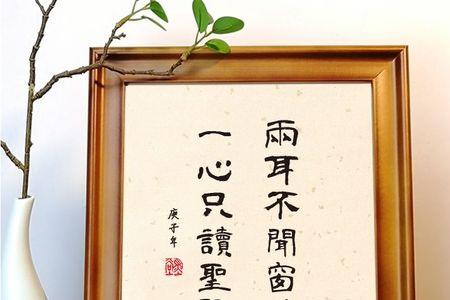 兩耳不聞窗
一心只讀聖
庚子年